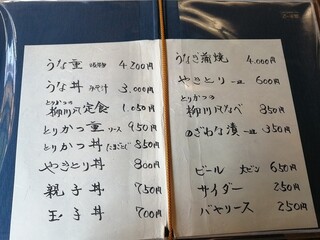 うな重 4,200円
うな丼 3,000円
とりかつの
柳川風定食 1,050円
とりかつ重 ソース 950円
とりかつ丼 たまごとじ 850円
やきとり丼 800円
親子丼 750円
玉子丼 700円
うなぎ蒲焼 4,000円
やきとり 一皿 600円
とりかつの
柳川風なべ 800円
のざわな漬 一皿 350円
ビール 大ビン 650円
サイダー 250円
バヤリース 250円